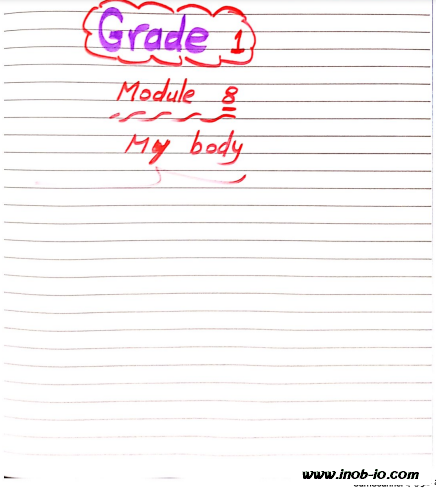 Grade 1
Module 8
My body
www.inob-io.com